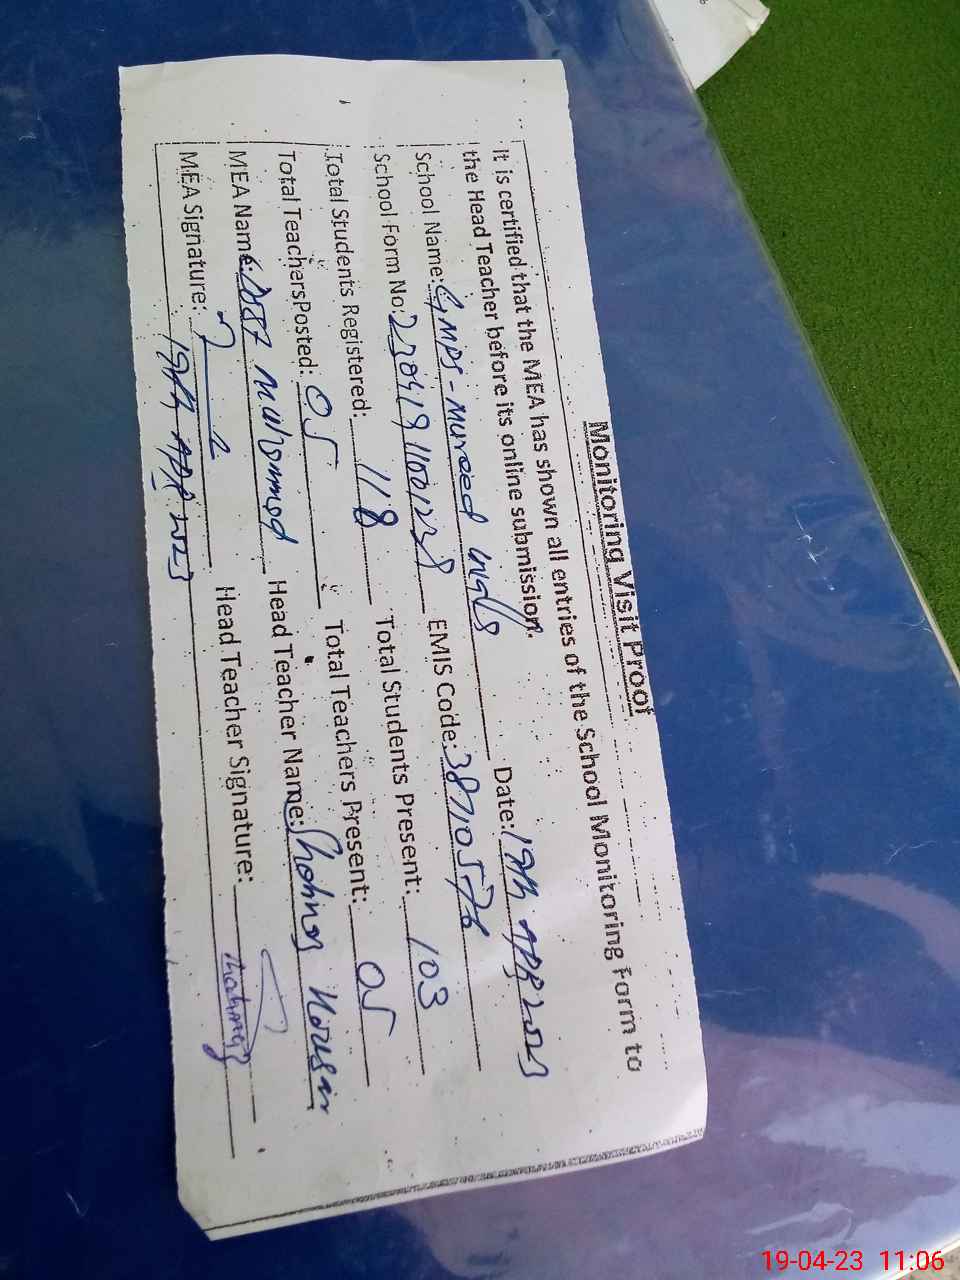 Monitoring Visit Proof
It is certified that the MEA has shown all entries of the School Monitoring Form to
the Head Teacher before its online submission. Date: 19th APR 2023
School Name: GMPS - Mureed EMIS Code: 38710576
School Form No: Total Students Present: 103
Total Students Registered: 118 Total Teachers Present: 05
Total Teachers Posted: 05 Head Teacher Name:
MEA Name: Muhammad Head Teacher Signature:
MEA Signature:
19th APR 2023
19-04-23 11:06